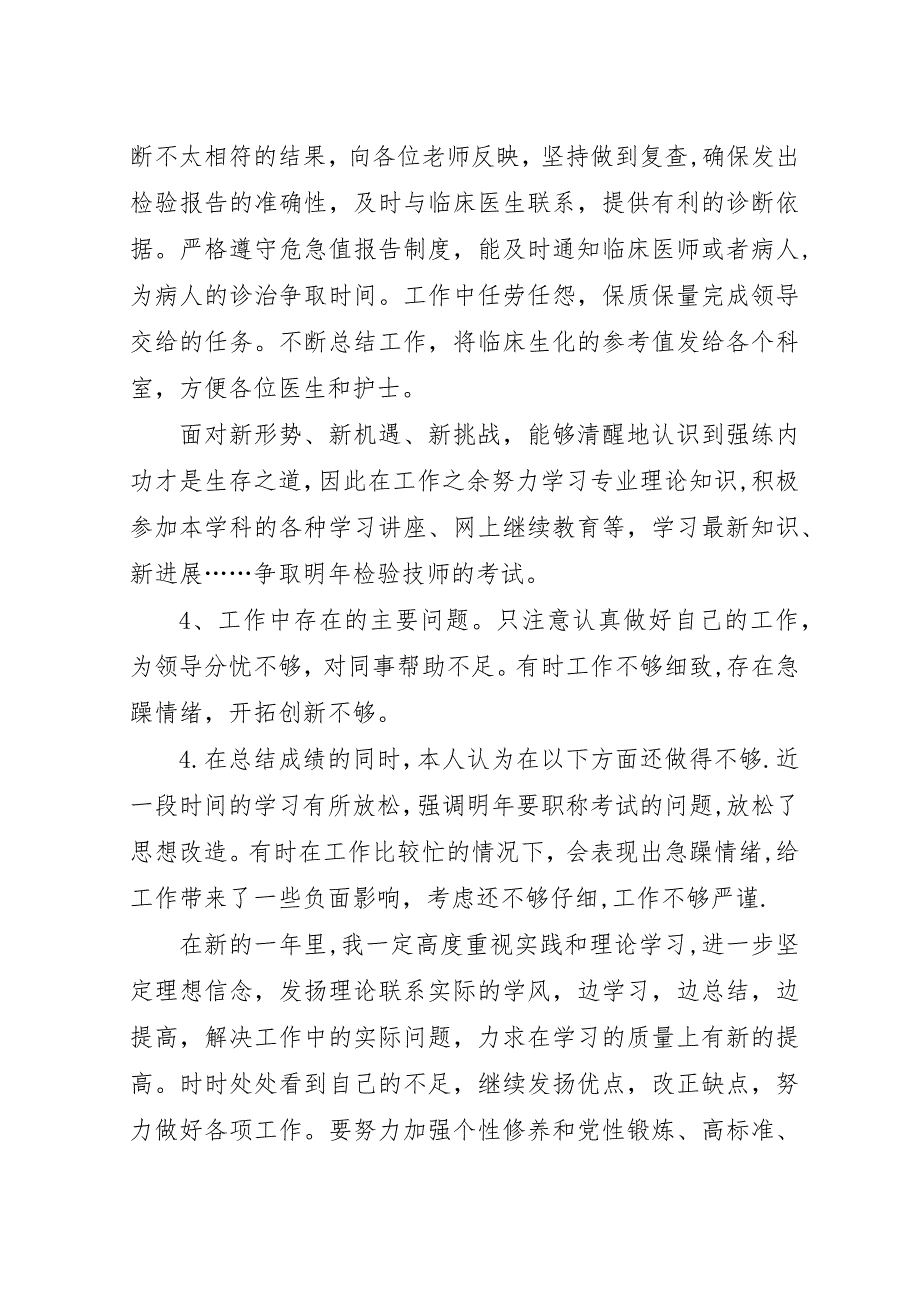 断不太相符的结果，向各位老师反映，坚持做到复查,确保发出
检验报告的准确性，及时与临床医生联系，提供有利的诊断依
据。严格遵守危急值报告制度，能及时通知临床医师或者病人,
为病人的诊治争取时间。工作中任劳任怨，保质保量完成领导
交给的任务。不断总结工作，将临床生化的参考值发给各个科
室，方便各位医生和护士。
面对新形势、新机遇、新挑战，能够清醒地认识到强练内
功才是生存之道,因此在工作之余努力学习专业理论知识,积极
参加本学科的各种学习讲座、网上继续教育等，学习最新知识、
新进展……争取明年检验技师的考试。
4、工作中存在的主要问题。只注意认真做好自己的工作，
为领导分忧不够，对同事帮助不足。有时工作不够细致,存在急
躁情绪，开拓创新不够。
4.在总结成绩的同时,本人认为在以下方面还做得不够.近
一段时间的学习有所放松，强调明年要职称考试的问题,放松了
思想改造。有时在工作比较忙的情况下，会表现出急躁情绪,给
工作带来了一些负面影响，考虑还不够仔细,工作不够严谨.
在新的一年里,我一定高度重视实践和理论学习,进一步坚
定理想信念，发扬理论联系实际的学风，边学习，边总结，边
提高，解决工作中的实际问题，力求在学习的质量上有新的提
高。时时处处看到自己的不足，继续发扬优点，改正缺点，努
力做好各项工作。要努力加强个性修养和党性锻炼、高标准、